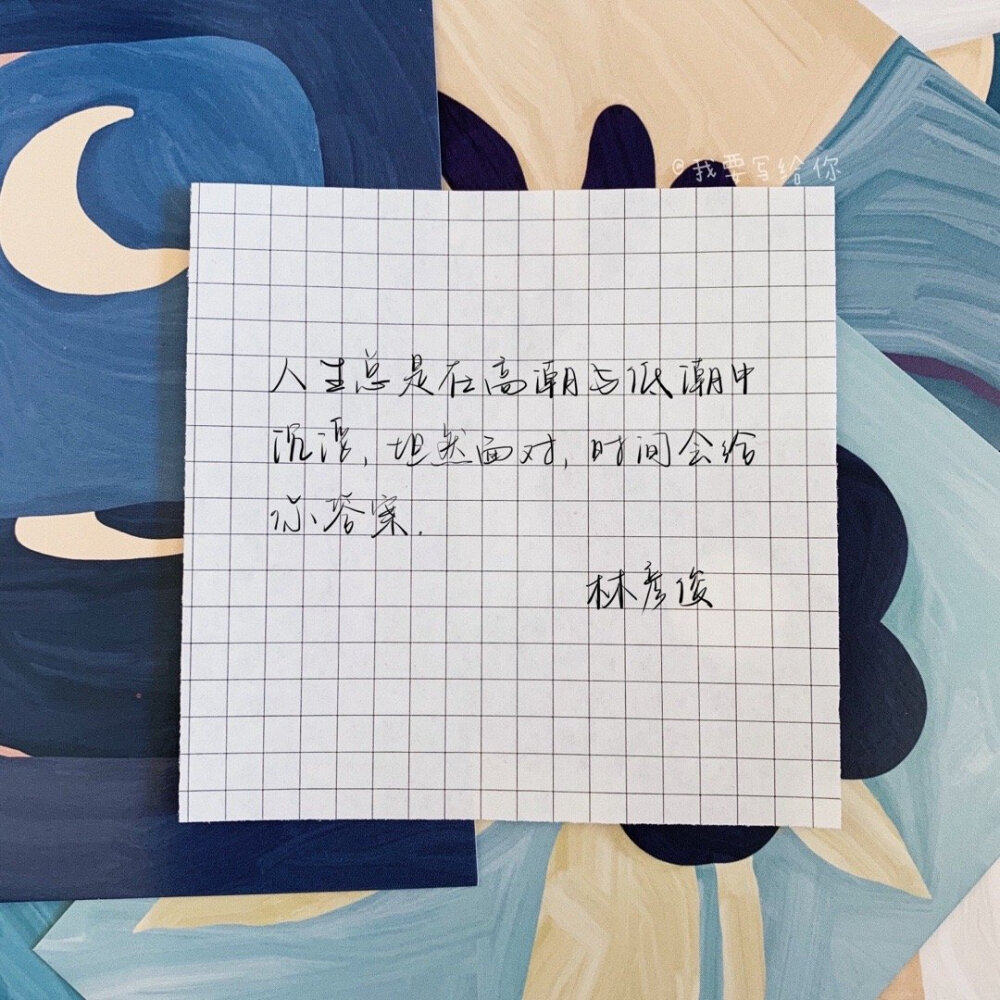 @我要写给你
人生总是在高潮与低潮中
沉浮,坦然面对,时间会给
你答案.
林彦俊